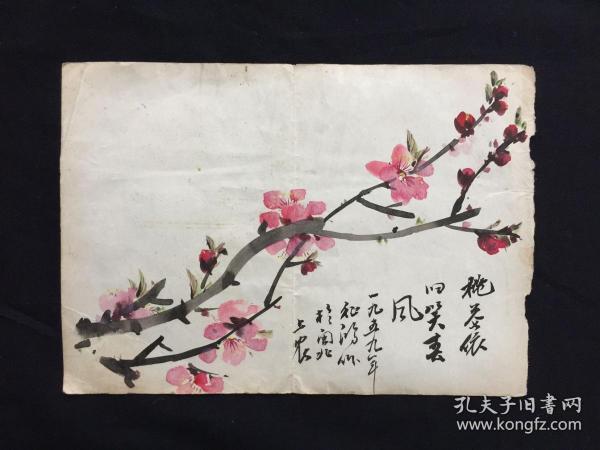 桃花依
旧笑春
风
一九五九年
征鸿作
于闽北
上农
孔夫子旧书网
www.kongfz.com